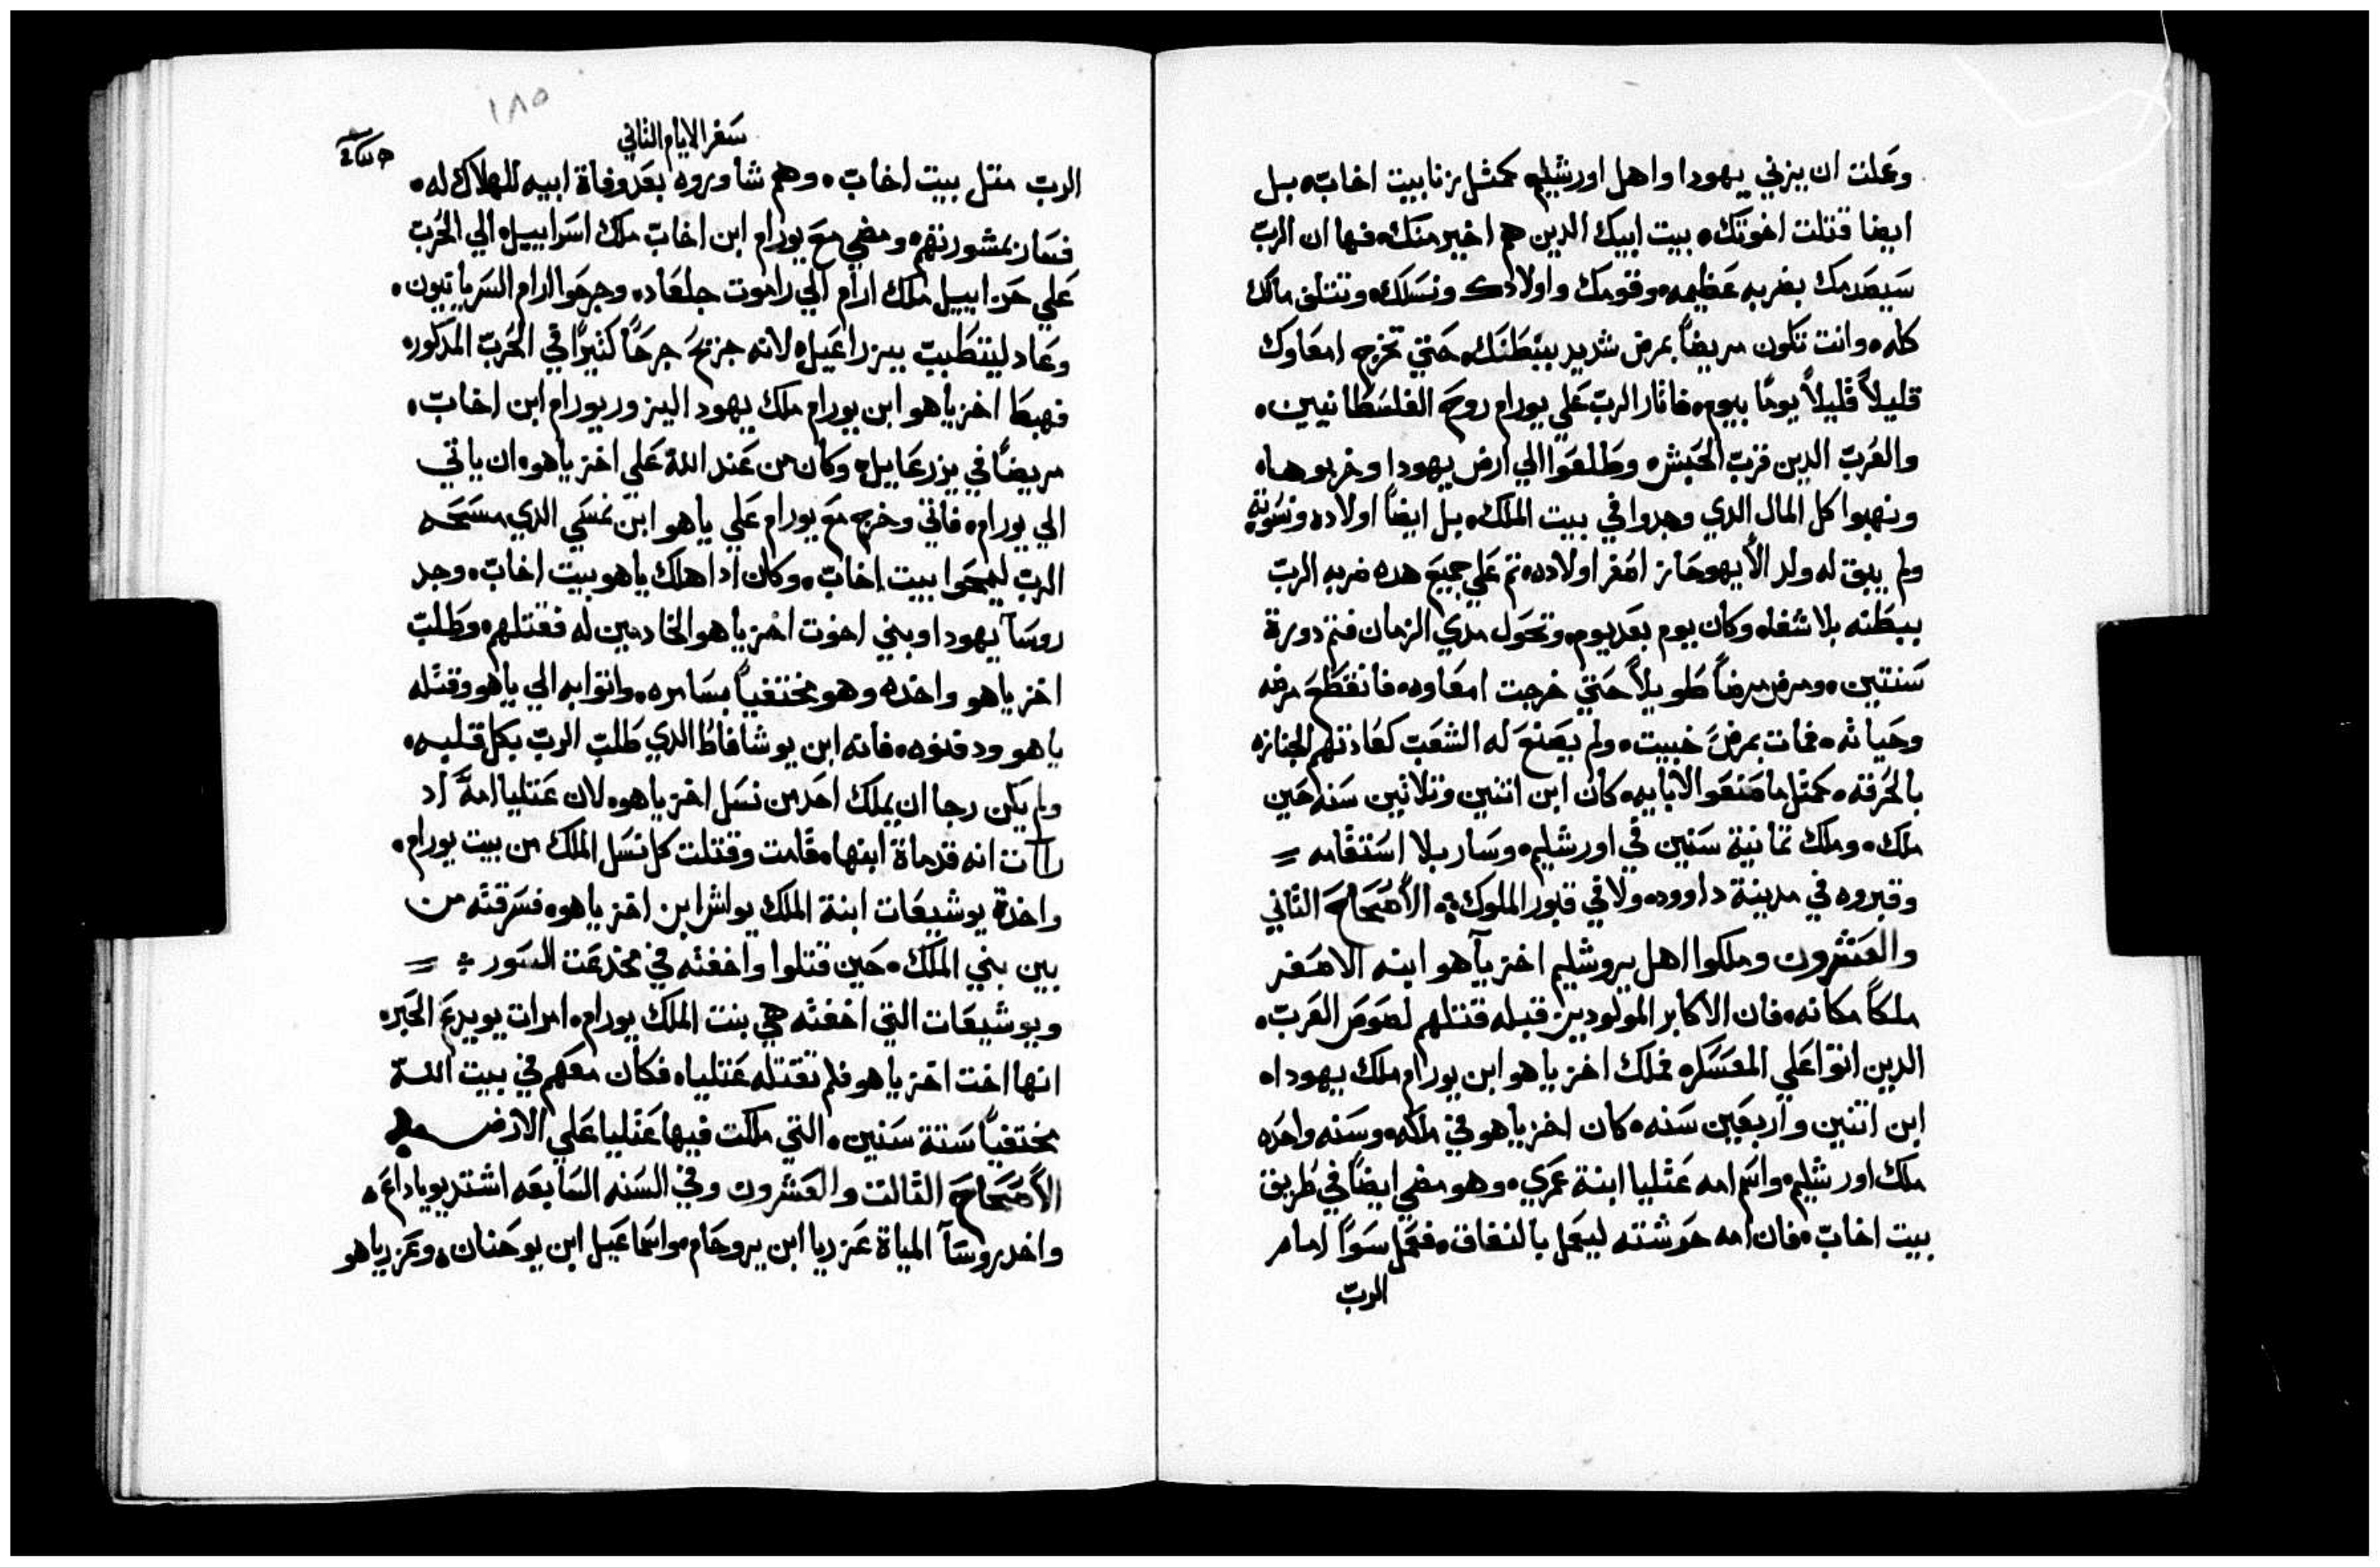 وعملت ان يزني يهودا واهل اورشليم كمثل زنا بيت اخاب ه بل
ايضا قتلت اخوتك ه بيت ابيك الدين هم اخير منك ه فها ان الرب
سيصدمك بضربه عظيمه وقومك واولادك ونسلك ه وتتلف مالك
كله ه وانت تكون مريضاً بمرض شديد ببطنك ه حتي تخرج امعاوك
قليلاً قليلاً يومًا بيوم ه فاثار الرب علي يورام روح الفلسطانيين ه
والعرب الدين قرب الحبش ه وطلعوا الي ارض يهودا وخربوها ه
ونهبوا كل المال الدي وجدوا في بيت الملك ه بل ايضاً اولاده ونسوته
ولم يبق له ولد الا يهوحاز اصغر اولاده ه تم علي جميع هده ضربه الرب
ببطنه بلا شفا ه وكان يوم بعد يوم ه وتحول مدي الزمان فتم دورة
سنتين ه ومرض مرضاً طويلاً حتي خرجت امعاوه ه فانقطع مرضه
وحياته ه فمات بمرض خبيت ه ولم يصنع له الشعب كعادتهم لجنازه
بالحرقه ه كمثل ما صنعوا لابايه ه كان ابن اتنين وتلاتين سنه حين
ملك ه وملك تمانية سنين في اورشليم ه وسار بلا استقامه =
وقبروه في مدينة داوود ه ولا في قبور الملوك ه الأصحاح التاني
والعشرون وملكوا اهل يروشليم اخزياهو ابنه الاصغر
ملكاً مكانه ه فان الاكابر المولودين قبله قتلهم لصوص العرب ه
الدين اتوا علي المعسكر ه فملك اخزياهو ابن يورام ملك يهودا ه
ابن اتنين واربعين سنه ه كان اخزياهو في ملكه ه وسنه واحده
ملك اورشليم ه واسم امه عتليا ابنة عمري ه وهو مضي ايضاً في طريق
بيت اخاب ه فان امه حوشته ليعمل بالنفاق ه فعمل سواً امام
الرب
١٨٥
سفر الايام التاني
الرب متل بيت اخاب ه وهم شاوروه بعد وفاة ابيه للهلاك له ه
فسار بمشورتهم ه ومضي مع يورام ابن اخاب ملك اسراييل ه الي الحرب
علي حزاييل ملك ارام الي راموت جلعاد ه وجرحوا ارام السريانيون ه
وعاد ليتطبب بيزراعيل ه لانه جرح جرحًا كتيرًا في الحرب المدكوره
فهبط اخزياهو ابن يورام ملك يهود اليزور يورام ابن اخاب ه
مريضًا في يزرعاييل ه وكان من عند الله علي اخزياهو ه ان ياتي
الي يورام ه فاتي وخرج مع يورام علي ياهو ابن نمسي الدي مسحه
الرب ليمحوا بيت اخاب ه وكان ادا هلك ياهو بيت اخاب ه وجد
روسآ يهودا وبني اخوت اخزياهو الخادمين له فقتلهم ه وطلب
اخزياهو واخده وهو مختفياً بسامره ه واتوا به الي ياهو وقتله
ياهو ودفنوه ه فانه ابن يوشافاط الدي طلب الرب بكل قلبه ه
ولم يكن رجا ان يملك احد من نسل اخزياهو ه لان عتليا امه اد
رات انه قد ماة ابنها ه قامت وقتلت كل نسل الملك من بيت يورام ه
واخدة يوشيعات ابنة الملك يواش ابن اخزياهو ه فسرقته من
بين بني الملك ه حين قتلوا واخفته في مخدعت السور ÷ =
ويوشيعات التي اخفته هي بنت الملك يورام ه امرات يويدع الحبر ه
انها اخت اخزياهو فلم تقتله عتليا ه فكان معهم في بيت الله
مختفياً ستة سنين ه التي ملكت فيها عتليا علي الارض
الأصحاح التالت والعشرون وفي السنه السابعه اشتد يوياداع ه
واخد روسآ المياة عزريا ابن يروحام ه واسماعيل ابن يوحنان ه وعزرياهو